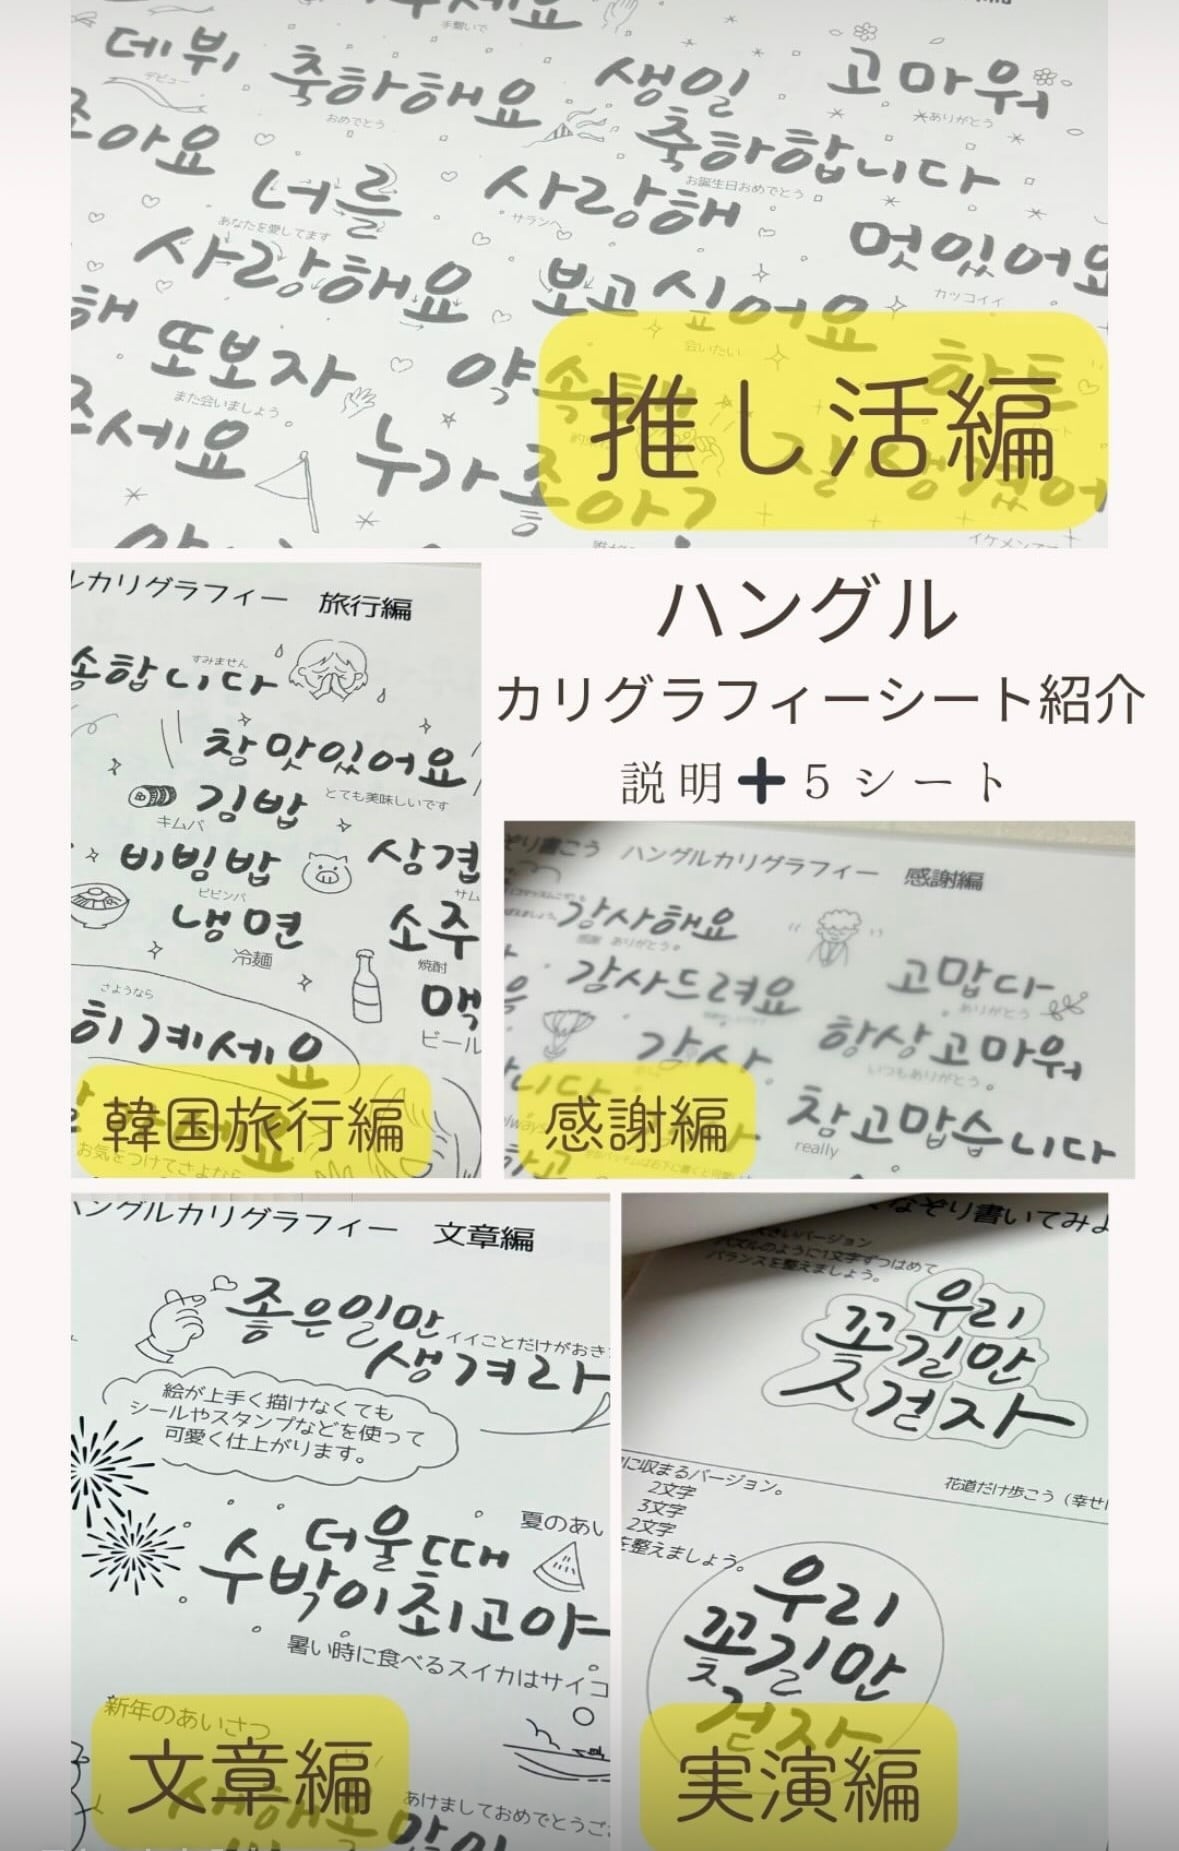 데뷔
デビュー
축하해요
おめでとう
생일
축하합니다
お誕生日おめでとう
고마워
ありがとう
좋아요
너를
あなたを愛してます
사랑해
サランヘ
멋있어요
カッコイイ
사랑해요
보고싶어요
会いたい
또보자
また会いましょう
약속해
하트
주세요
누가좋아?
잘생겼어
イケメンで
推し活編
ルカリグラフィー 旅行編
송합니다
すみません
참맛있어요
とても美味しいです
김밥
キムパ
비빔밥
ビビンバ
삼겹
サム
냉면
冷麺
소주
焼酎
맥
ビール
さようなら
히계세요
お気をつけてさよなら
韓国旅行編
ハングル
カリグラフィーシート紹介
説明➕5シート
ぞり書こう ハングルカリグラフィー 感謝編
감사해요
感謝 ありがとう。
감사드려요
고맙다
ありがとう
감사
항상고마워
いつもありがとう。
니다
참고맙습니다
really
하고
感謝編
ハングルカリグラフィー 文章編
좋은일만
생겨라
イイことだけがおき
絵が上手く描けなくても
シールやスタンプなどを使って
可愛く仕上がります。
夏のあい
더울때
수박이최고야
暑い時に食べるスイカはサイコ
新年のあいさつ
새해복많이
あけましておめでとうご
文章編
なぞり書いてみよ
大きいバージョン
パズルのように1文字ずつはめて
バランスを整えましょう。
우리
꽃길만
걷자
花道だけ歩こう(幸せ
に収まるバージョン。
2文字
3文字
2文字
を整えましょう。
우리
꽃길만
걷자
実演編